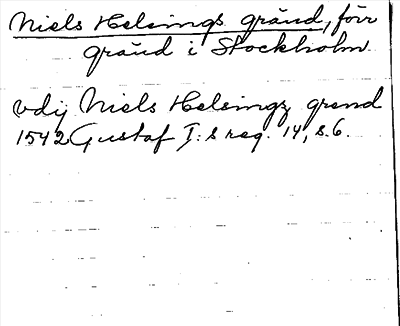 Niels Helsings gränd, förr
gränd i Stockholm
vdij Niels Helsingz grend
1542 Gustaf I:s reg. 14, s. 6.